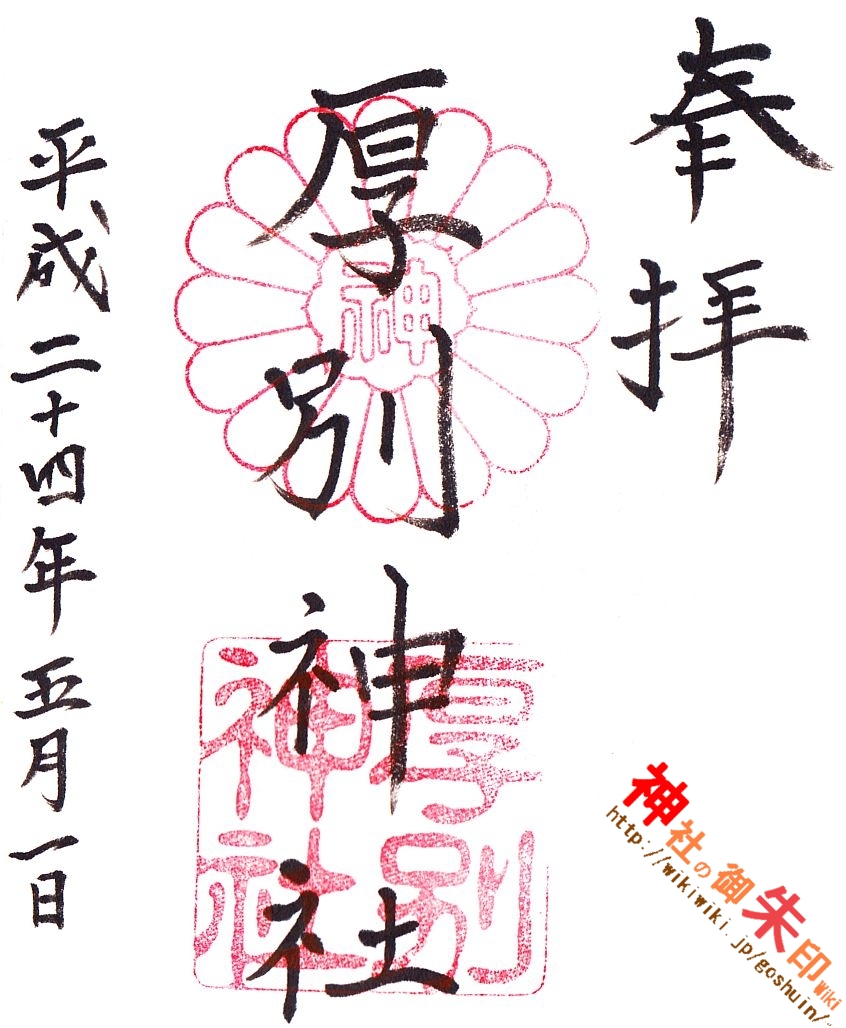 奉拝
厚別神社
神
厚別
神社
平成二十四年五月一日
神社の御朱印Wiki
http://wikiwiki.jp/goshuin/